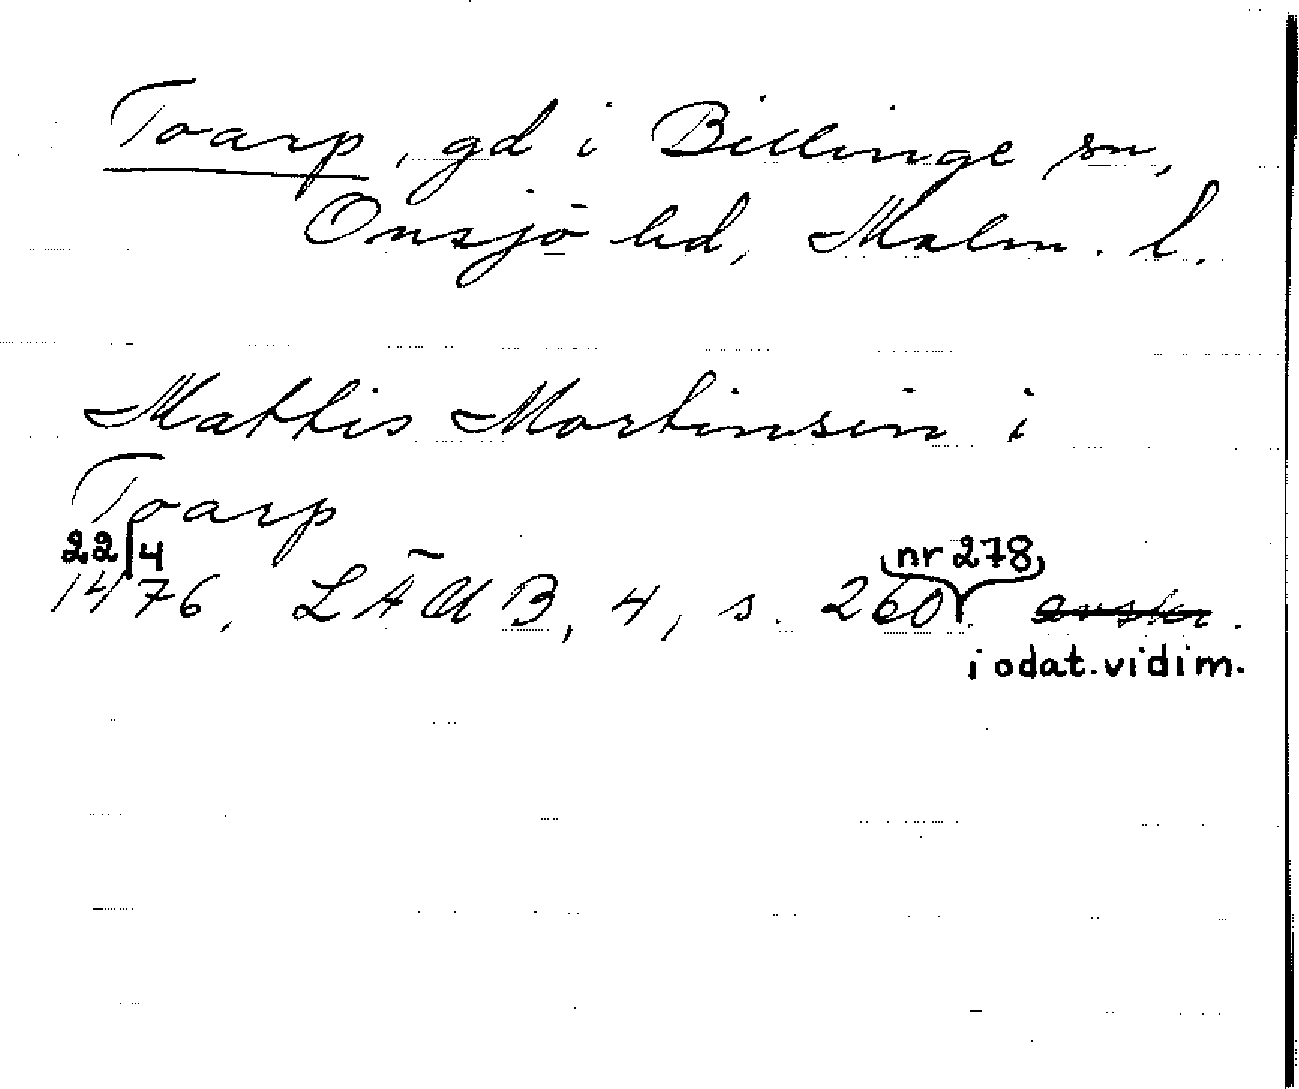 Toarp, gd i Billinge sn,
Onsjö hd, Malm. l.
Mattis Mortinsin i
Toarp
22/4
nr 278
1476, LÄUB, 4, s. 260 avskr.
i odat. vidim.